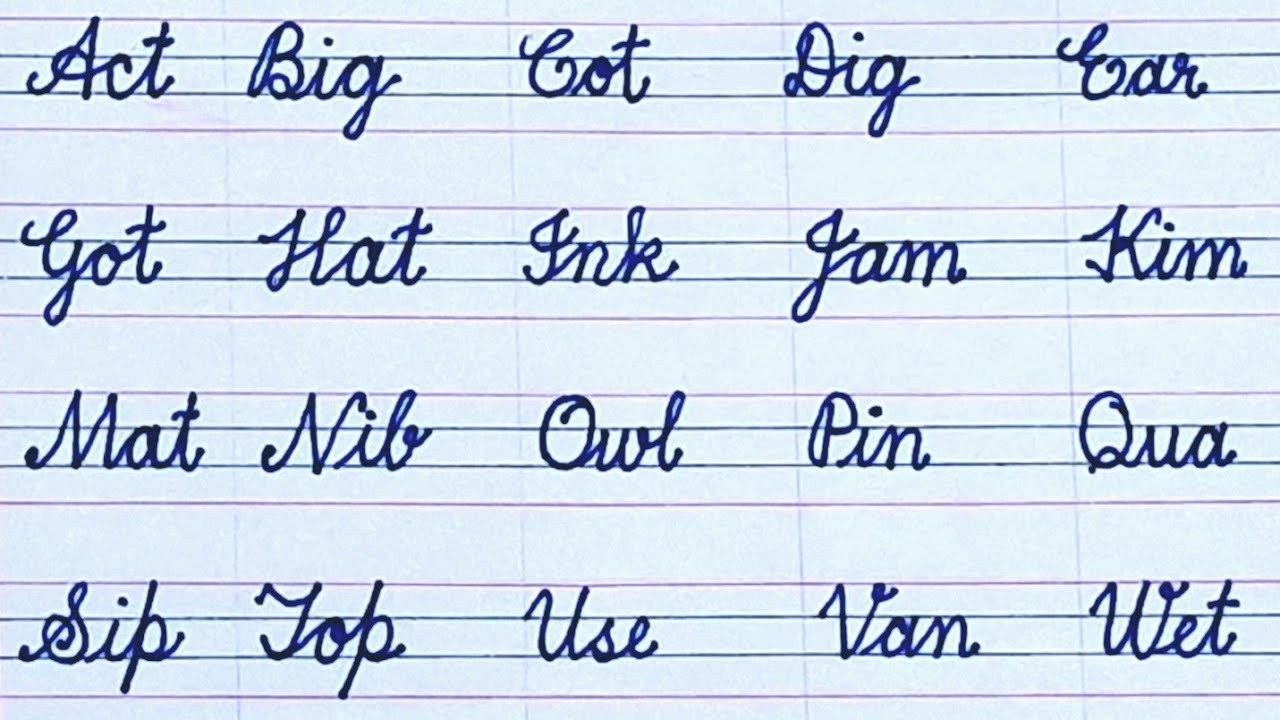 Act Big Cot Dig Ear
Got Hat Ink Jam Kim
Mat Nib Owl Pin Qua
Sip Top Use Van Wet